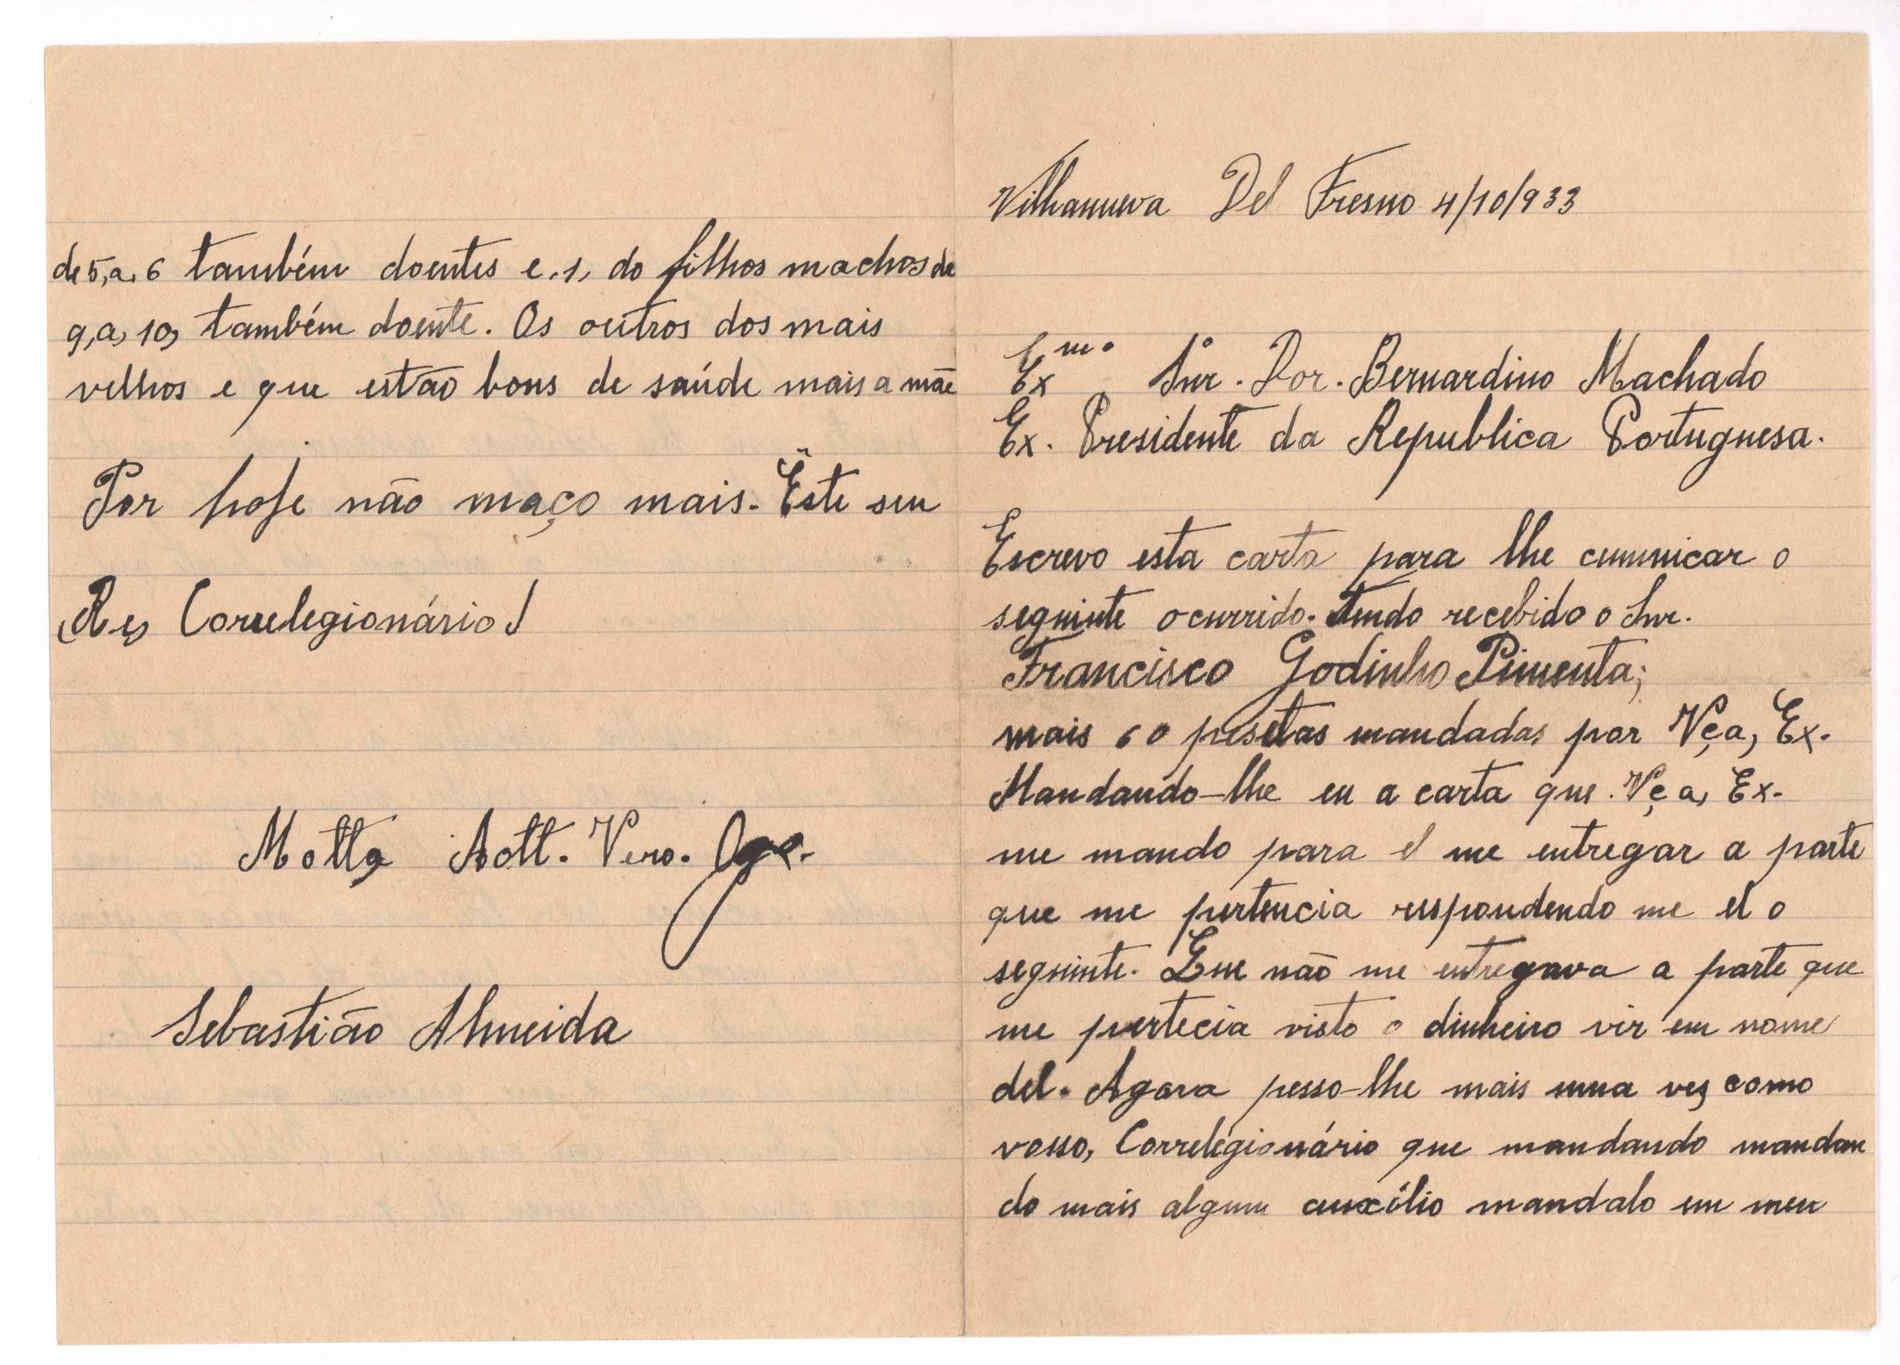 Vilhanueva Del Fresno 4/10/933
Exmo Snr. Dor. Bernardino Machado
Ex. Presidente da Republica Portuguesa.
Escrevo esta carta para lhe cumnicar o
seguinte ocurrido. Tendo recebido o Snr.
Francisco Godinho Pimenta;
mais 60 pesetas mandadas por Vça, Ex.
Mandando-lhe eu a carta que. Vça, Ex.
me mando para el me entregar a parte
que me pertencia respondendo me el o
seguinte. Que não me entregava a parte que
me pertecia visto o dinheiro vir em nome
del. Agora pesso-lhe mais uma ves como
vosso, Correlegionário que mandando mandan
do mais algum auxilio mandalo em meu
de 5, a, 6 também doentes e, 1, do filhos machos de
9, a, 10, também doente. Os outros dos mais
velhos e que estão bons de saúde mais a mãe
Por hoje não maço mais. Este seu
Correlegionário!
Motto Att. Vero.
Sebastião Almeida